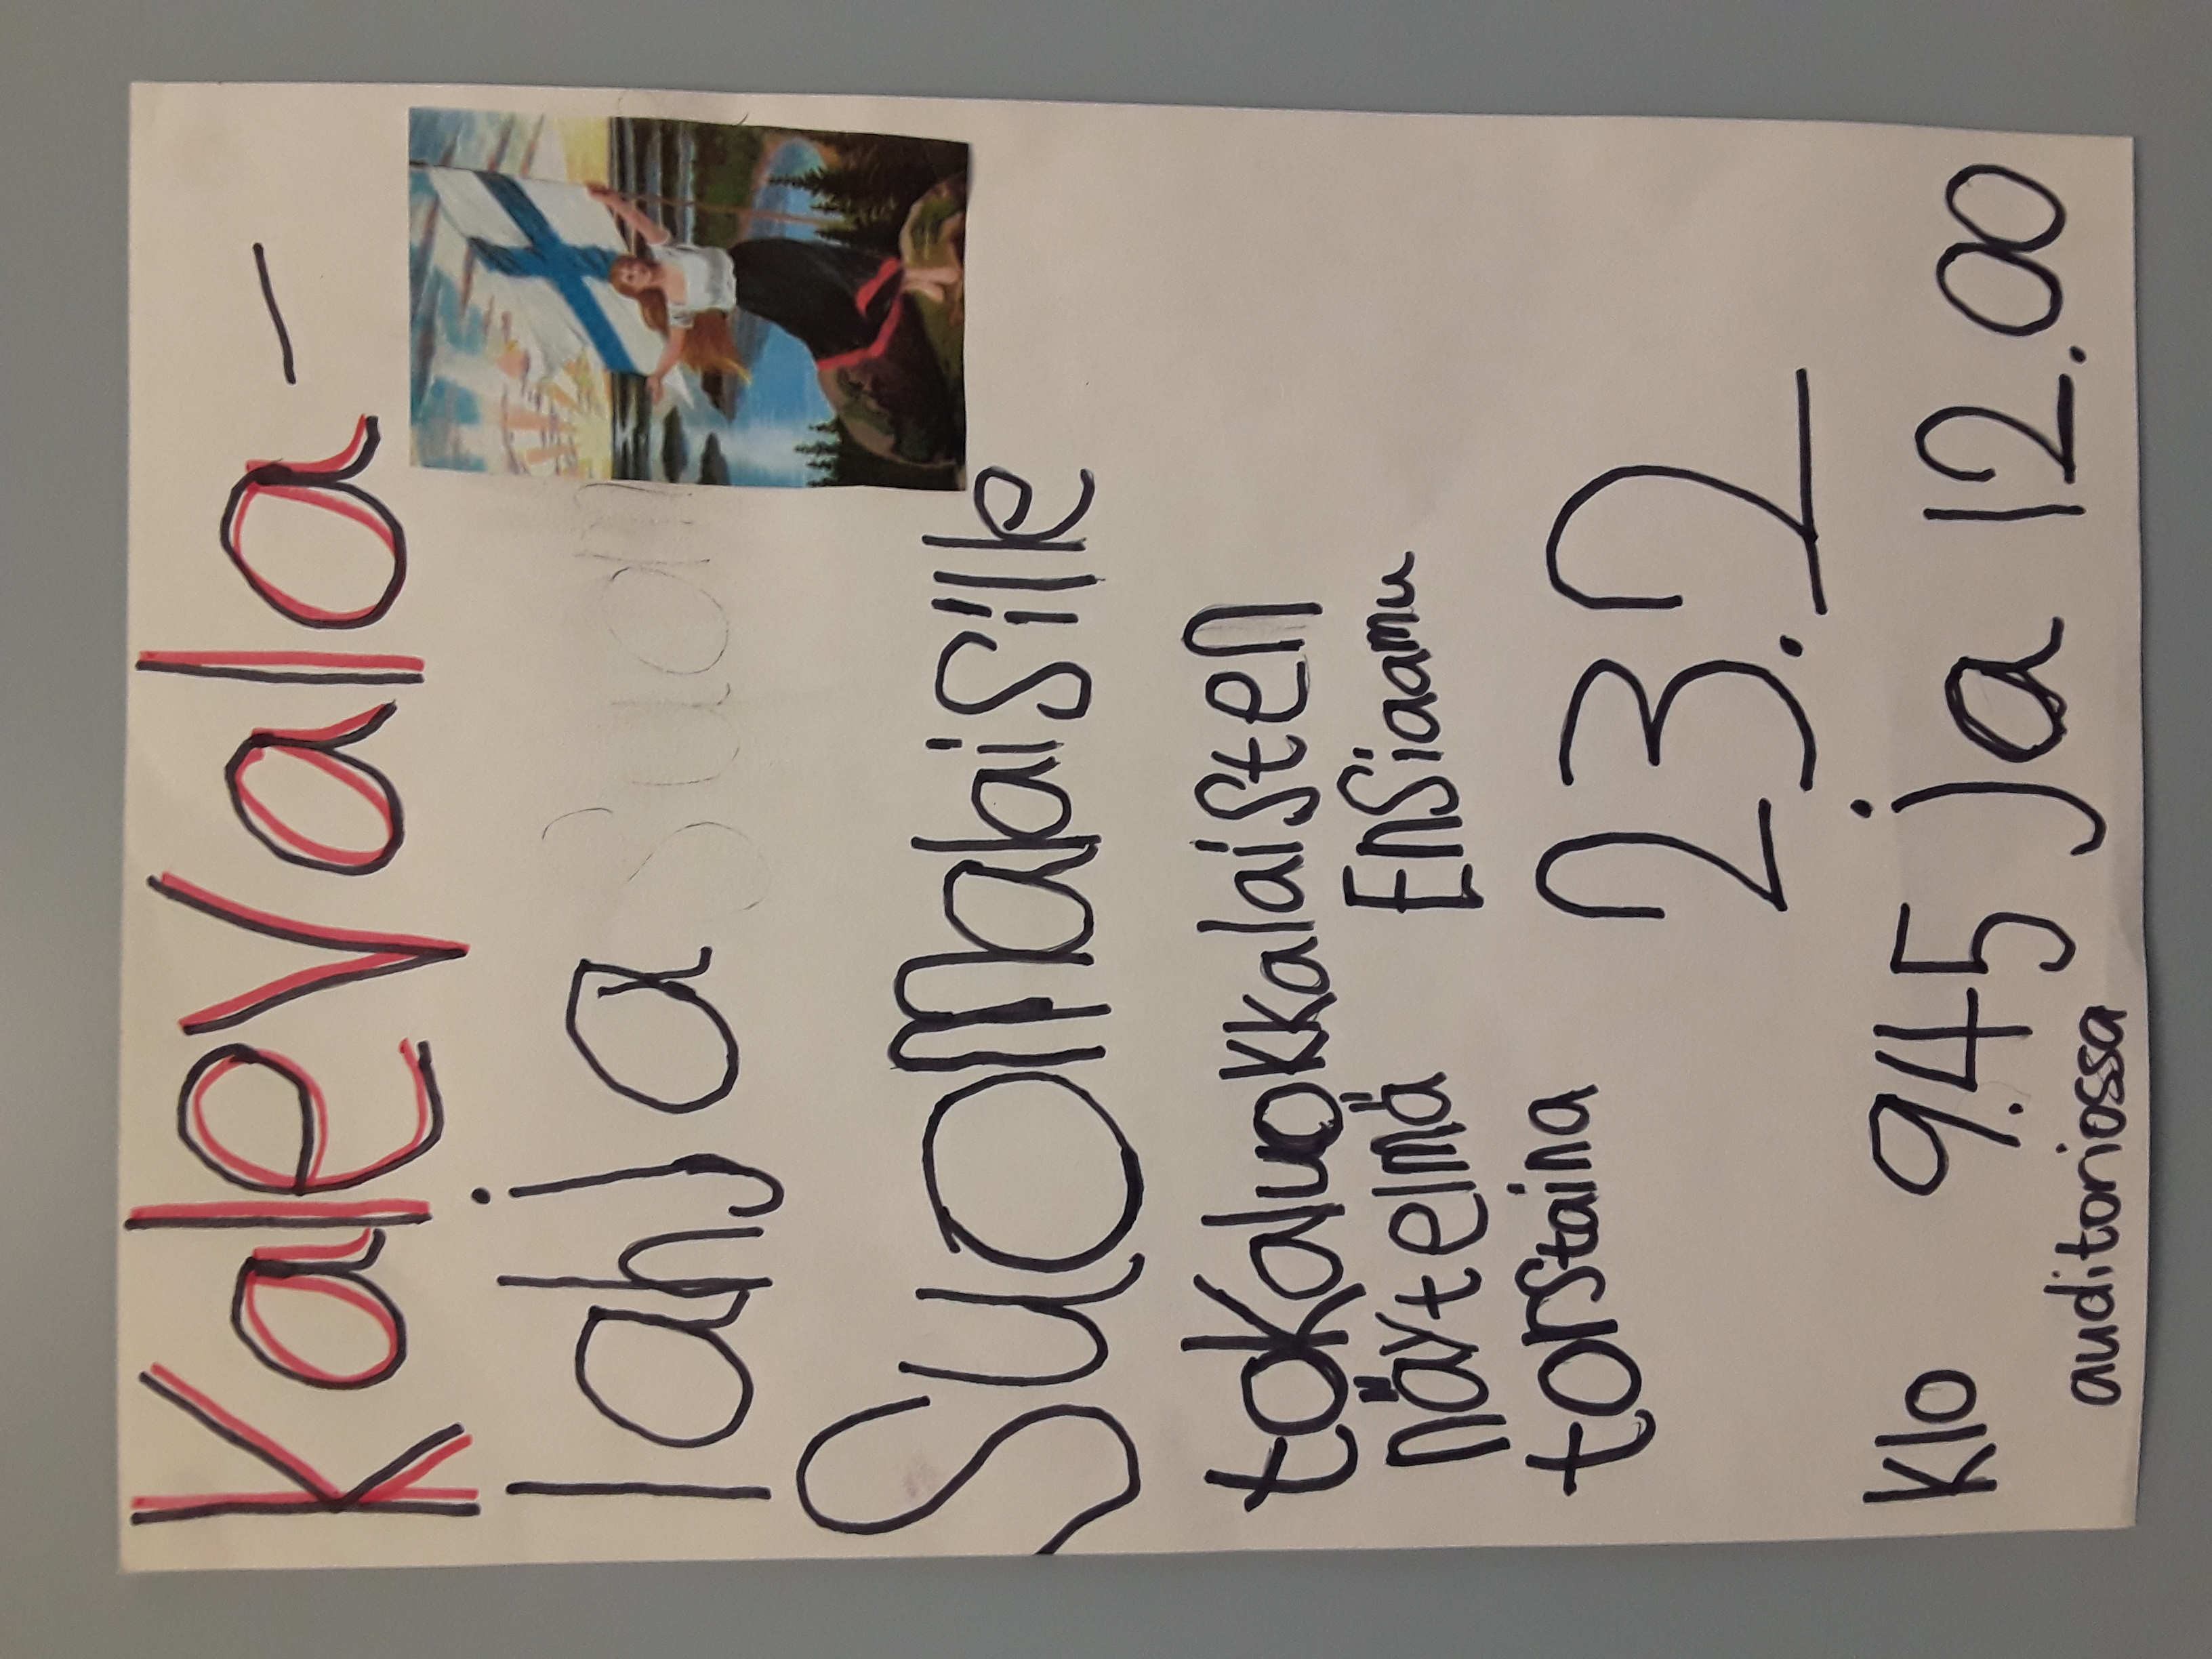 Kalevala -
lahja
Suomalaisille
tokaluokkalaisten
näytelmä Ensiaamu
torstaina 23.2
klo 9.45 ja 12.00
auditoriossa